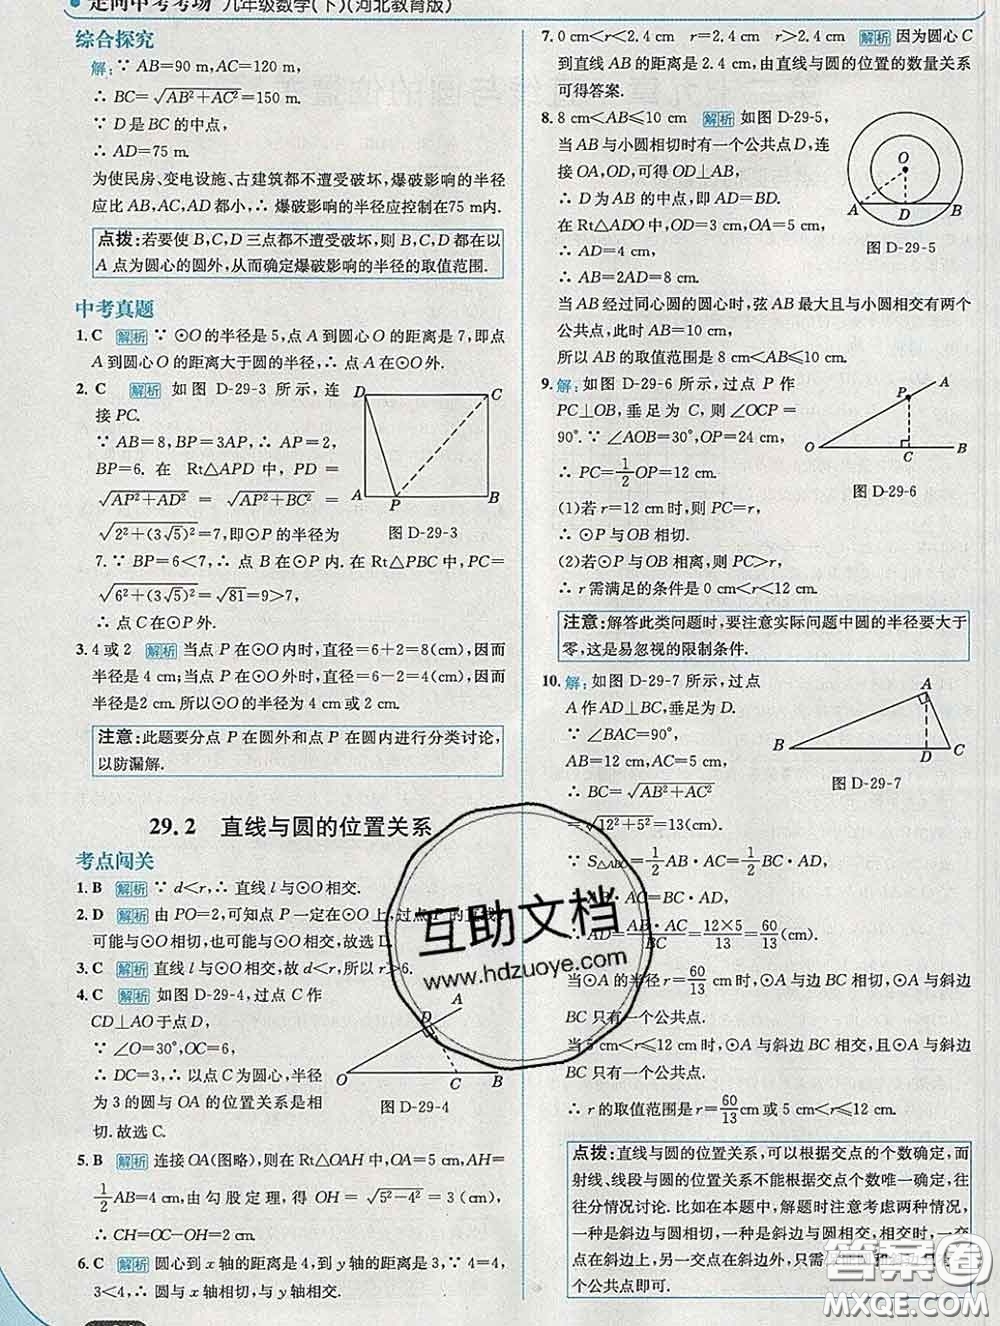 走向中考考场 九年级数学(下)(河北教育版)
综合探究
解:∵ AB=90 m,AC=120 m,
∴ BC=√(AB²+AC²)=150 m.
∵ D是BC的中点,
∴ AD=75 m.
为使民房、变电设施、古建筑都不遭受破坏,爆破影响的半径
应比AB,AC,AD都小,∴ 爆破影响的半径应控制在75 m内.
点拨:若要使B,C,D三点都不遭受破坏,则B,C,D都在以
A点为圆心的圆外,从而确定爆破影响的半径的取值范围.
中考真题
1.C 解析 ∵ ⊙O的半径是5,点A到圆心O的距离是7,即点
A到圆心O的距离大于圆的半径,∴ 点A在⊙O外.
2.C 解析 如图D-29-3所示,连
接PC.
∵ AB=8,BP=3AP,∴ AP=2,
BP=6. 在 Rt△APD 中, PD =
√(AP²+AD²) = √(AP²+BC²) =
√(2²+(3√5)²)=7,即⊙P的半径为
7.∵ BP=6<7,∴ 点B在⊙P内.在Rt△PBC中,PC=
√(6²+(3√5)²)=√81=9>7,
∴ 点C在⊙P外.
D C A P B
图 D-29-3
3.4或2 解析 当点P在⊙O内时,直径=6+2=8(cm),因而
半径是4 cm;当点P在⊙O外时,直径=6-2=4(cm),因而
半径是2 cm.所以⊙O的半径为4 cm或2 cm.
注意:此题要分点P在圆外和点P在圆内进行分类讨论,
以防漏解.
29.2 直线与圆的位置关系
考点闯关
1.B 解析 ∵ d<r,∴ 直线l与⊙O相交.
2.D 解析 由PO=2,可知点P一定在⊙O上,过点P的直线l
可能与⊙O相切,也可能与⊙O相交,故选D.
3.C 解析 直线l与⊙O相交,故d<r,所以r>6.
4.C 解析 如图D-29-4,过点C作
CD⊥AO于点D,
∵ ∠O=30°,OC=6,
∴ DC=3,∴ 以点C为圆心,半径
为3的圆与OA的位置关系是相
切.故选C.
A D O C B
图 D-29-4
5.B 解析 连接OA(图略),则在Rt△OAH中,OA=5 cm,AH=
1/2 AB=4 cm,由勾股定理,得OH=√(5²-4²)=3(cm),
∴ CH=CO-OH=2 cm.
6.C 解析 圆心到x轴的距离是4,到y轴的距离是3,∵ 4=4,
3<4,∴ 圆与x轴相切,与y轴相交.
7.0 cm<r<2.4 cm r=2.4 cm r>2.4 cm 解析 因为圆心C
到直线AB的距离是2.4 cm,由直线与圆的位置的数量关系
可得答案.
8.8 cm<AB≤10 cm 解析 如图D-29-5,
当AB与小圆相切时有一个公共点D,连
接OA,OD,可得OD⊥AB,
∴ D为AB的中点,即AD=BD.
在Rt△ADO中,OD=3 cm,OA=5 cm,
∴ AD=4 cm,
∴ AB=2AD=8 cm.
O A D B
图 D-29-5
当AB经过同心圆的圆心时,弦AB最大且与小圆相交有两个
公共点,此时AB=10 cm,
所以AB的取值范围是8 cm<AB≤10 cm.
9.解:如图D-29-6所示,过点P作
PC⊥OB,垂足为C,则∠OCP=
90°.∵ ∠AOB=30°,OP=24 cm,
∴ PC=1/2 OP=12 cm.
A P O C B
图 D-29-6
(1)若r=12 cm时,则PC=r,
∴ ⊙P与OB相切.
(2)若⊙P与OB相离,则PC>r,
∴ r需满足的条件是0 cm<r<12 cm.
注意:解答此类问题时,要注意实际问题中圆的半径要大于
零,这是易忽视的限制条件.
10.解:如图D-29-7所示,过点
A作AD⊥BC,垂足为D.
∵ ∠BAC=90°,
AB=12 cm,AC=5 cm,
∴ BC=√(AB²+AC²)
=√(12²+5²)=13(cm).
A B D C
图 D-29-7
∵ S△ABC=1/2 AB·AC=1/2 BC·AD,
∴ AB·AC=BC·AD,
∴ AD=AB·AC/BC=12×5/13=60/13(cm).
当⊙A的半径r=60/13 cm时,⊙A与边BC相切,⊙A与斜边
BC只有一个公共点.
当5 cm<r≤12 cm时,⊙A与斜边BC相交,且⊙A与斜边
BC只有一个公共点.
∴ r的取值范围是r=60/13 cm或5 cm<r≤12 cm.
点拨:直线与圆的位置关系,可以根据交点的个数确定,而
射线、线段与圆的位置关系不能根据交点个数唯一确定,往
往分情况讨论.比如在本题中,解题时注意考虑两种情况,
一种是斜边与圆相切,一种是斜边与圆相交,相交时,一交
点在斜边上,另一交点在斜边外,只需
一个公共点即可.
互助文档
www.hdzuoye.com
答案卷
MXQE.COM